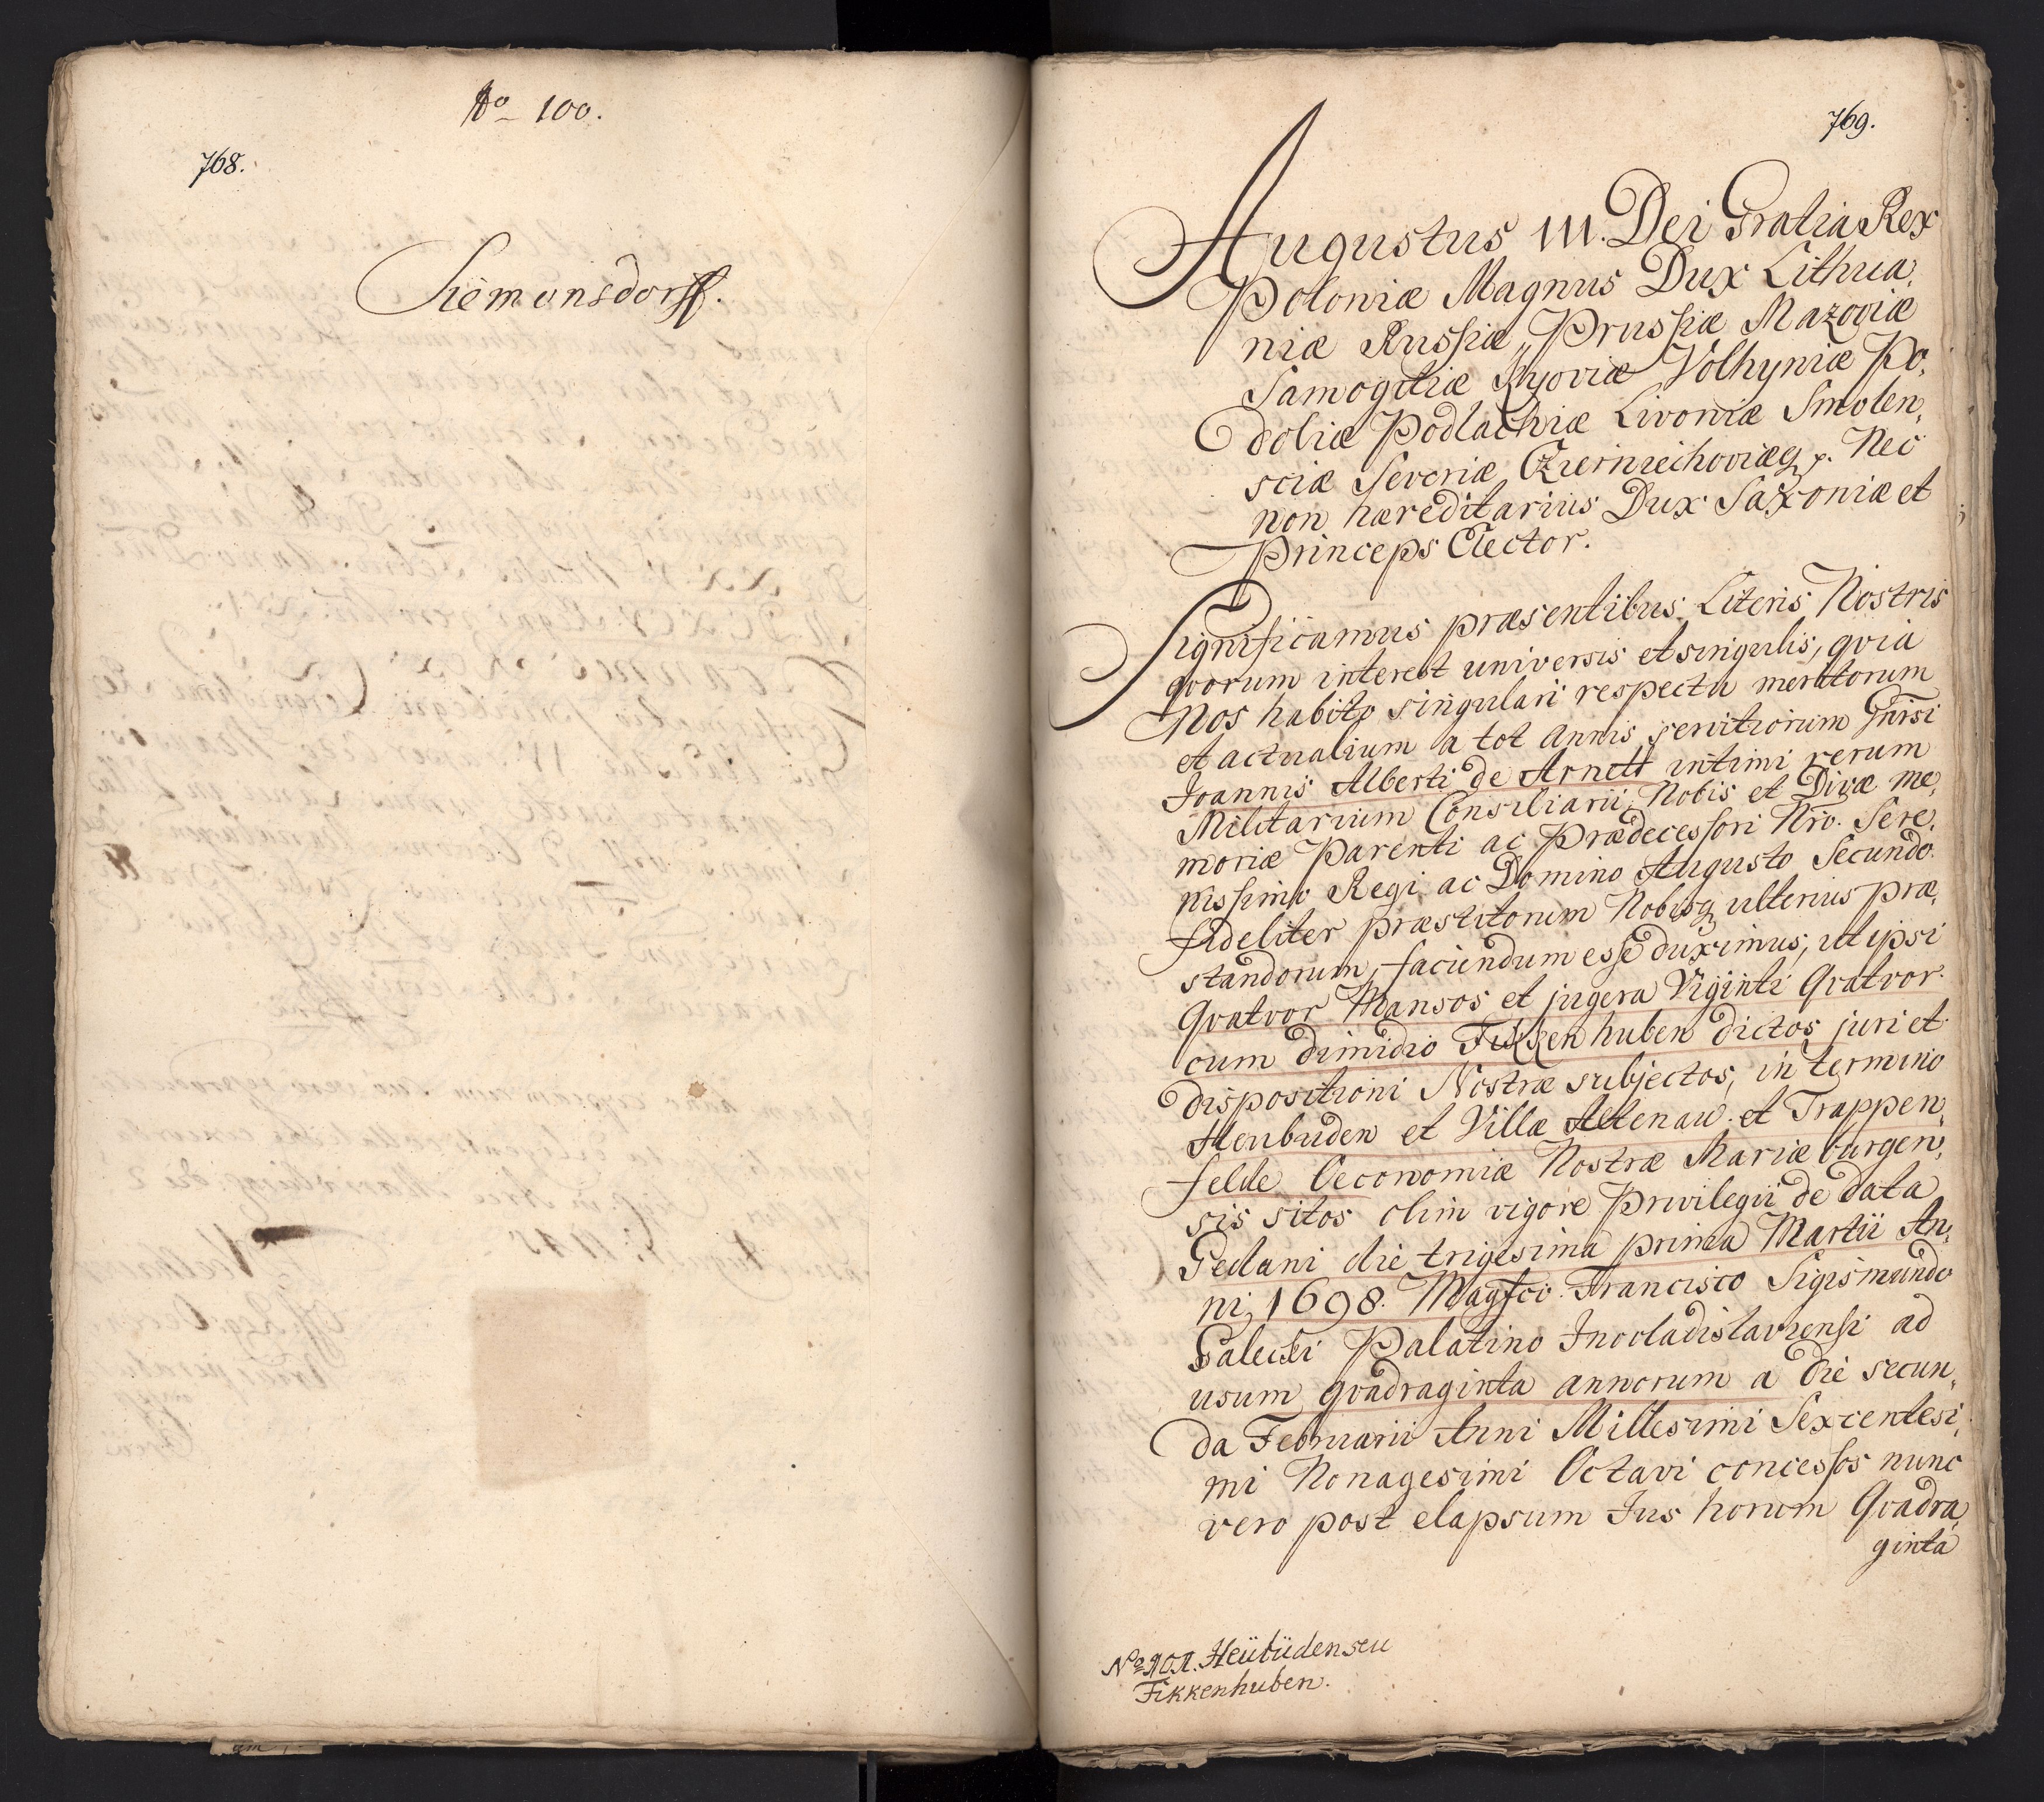 No 100.
768.
Siemonsdorff.
769.
Augustus III. Dei Gratia Rex
Poloniæ Magnus Dux Lithua,
niæ Russiæ, Prussiæ Mazoviæ
Samogitiæ Kyoviæ Volhyniæ Po,
doliæ Podlachiæ Livoniæ Smolen,
sciæ Severiæ Czierniechoviæq, Nec
non hæreditarius Dux Saxoniæ et
Princeps Elector.
Significamus præsentibus Literis Nostris
qvorum interest universis et singulis, qvia
Nos habito singulari respectu meritorum
et actualium a tot annis servitiorum Gnrsi
Joannis Alberti de Arnett intimi rerum
Militarium Consiliarii, Nobis et Divæ me,
moriæ Parenti ac Prædecessori Nro. Sere,
nissimo Regi ac Domino Augusto Secundo
fideliter præstitorum Nobisq ulterius præ,
standorum, faciundum esse duximus, ut ipsi
Qvatvor Mansos et jugera Viginti Qvatvor
cum dimidio Fikkenhuben dictos juri et
dispositioni Nostræ subjectos, in termino
Heubuden et Villæ Altenau et Trappen,
felde Oeconomiæ Nostræ Mariæburgen,
sis sitos olim vigore Privilegii de data
Gedani die trigesima prima Martii An,
ni, 1698. Magfco Francisco Sigismundo
Galecki Palatino Inovladislaviensi ad
usum qvadraginta annorum a die secun,
da Februarii Anni Millesimi Sexcentesi,
mi Nonagesimi Octavi concessos nunc
vero post elapsum Jus horum Qvadra,
ginta
No 101. Heübüden seu
Fikkenhuben.